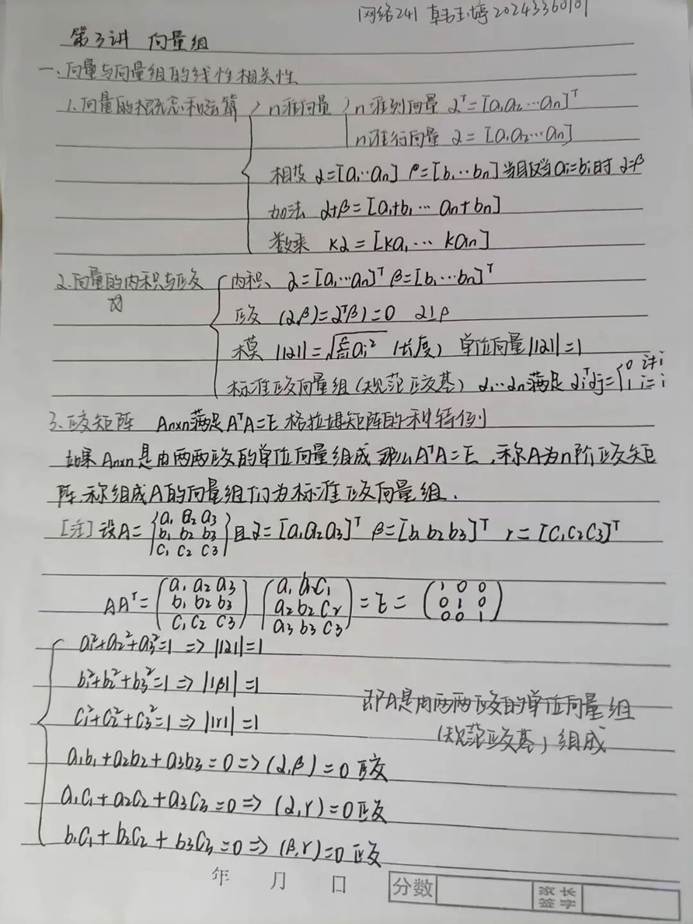 网络241 韩玉婷 20243360101
第3讲 向量组
一、向量与向量组的线性相关性
1.向量的概念和运算 n维向量 n维列向量 α^T=[a₁a₂…aₙ]^T
n维行向量 α=[a₁a₂…aₙ]
相等 α=[a₁…aₙ] β=[b₁…bₙ]当且仅当aᵢ=bᵢ时 α=β
加法 α+β=[a₁+b₁…aₙ+bₙ]
数乘 kα=[ka₁…kaₙ]
2.向量的内积与正交 内积、α=[a₁…aₙ]^T β=[b₁…bₙ]^T
正交 (α,β)=α^Tβ)=0 α⊥β
模 ||α||=√∑aᵢ² (长度) 单位向量||α||=1
标准正交向量组(规范正交基) α₁…αₙ满足 αᵢ^Tαⱼ={0 i≠j
1 i=j
3.正交矩阵 Aₙₓₙ满足A^TA=E 格拉姆矩阵的利特例
如果Aₙₓₙ是由两两正交的单位向量组成 那么A^TA=E,称A为n阶正交矩
阵,称组成A的向量组们为标准正交向量组.
[注]设A=(a₁ a₂ a₃
b₁ b₂ b₃
c₁ c₂ c₃)且α=[a₁a₂a₃]^T β=[b₁b₂b₃]^T r=[c₁c₂c₃]^T
AA^T=(a₁ a₂ a₃ (a₁ b₁ c₁ =E=(1 0 0
b₁ b₂ b₃ a₂ b₂ c₂ 0 1 0
c₁ c₂ c₃) a₃ b₃ c₃) 0 0 1)
a₁²+a₂²+a₃²=1 => ||α||=1
b₁²+b₂²+b₃²=1 => ||β||=1
c₁²+c₂²+c₃²=1 => ||r||=1
即A是由两两正交的单位向量组
(规范正交基)组成
a₁b₁+a₂b₂+a₃b₃=0 => (α,β)=0 正交
a₁c₁+a₂c₂+a₃c₃=0 => (α,r)=0 正交
b₁c₁+b₂c₂+b₃c₃=0 => (β,r)=0 正交
年 月 日 分数 家长签字